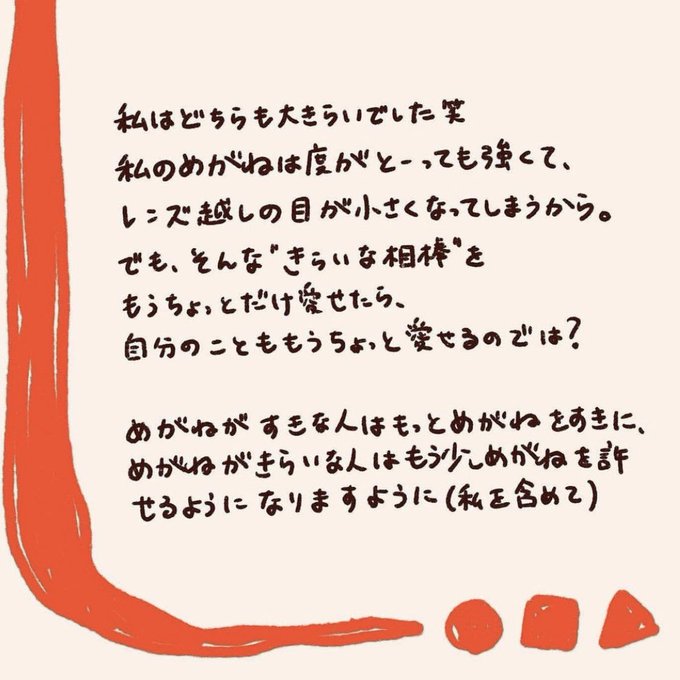 私はどちらも大きらいでした笑
私のめがねは度がとーっても強くて、
レンズ越しの目が小さくなってしまうから。
でも、そんな"きらいな相棒"を
もうちょっとだけ愛せたら、
自分のことももうちょっと愛せるのでは?
めがねがすきな人はもっとめがねをすきに、
めがねがきらいな人はもう少しめがねを許
せるようになりますように(私を含めて)